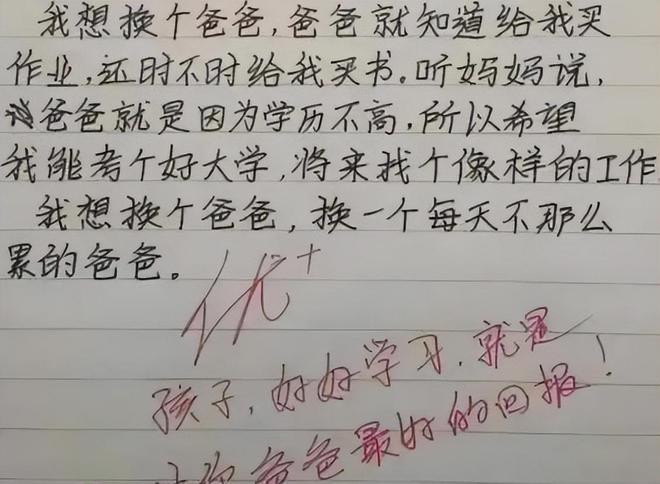 我想换个爸爸,爸爸就知道给我买
作业,还时不时给我买书。听妈妈说,
爸爸就是因为学历不高,所以希望
我能考个好大学,将来找个像样的工作
我想换个爸爸,换一个每天不那么
累的爸爸。
优+
孩子,好好学习,就是
你爸爸最好的回报!